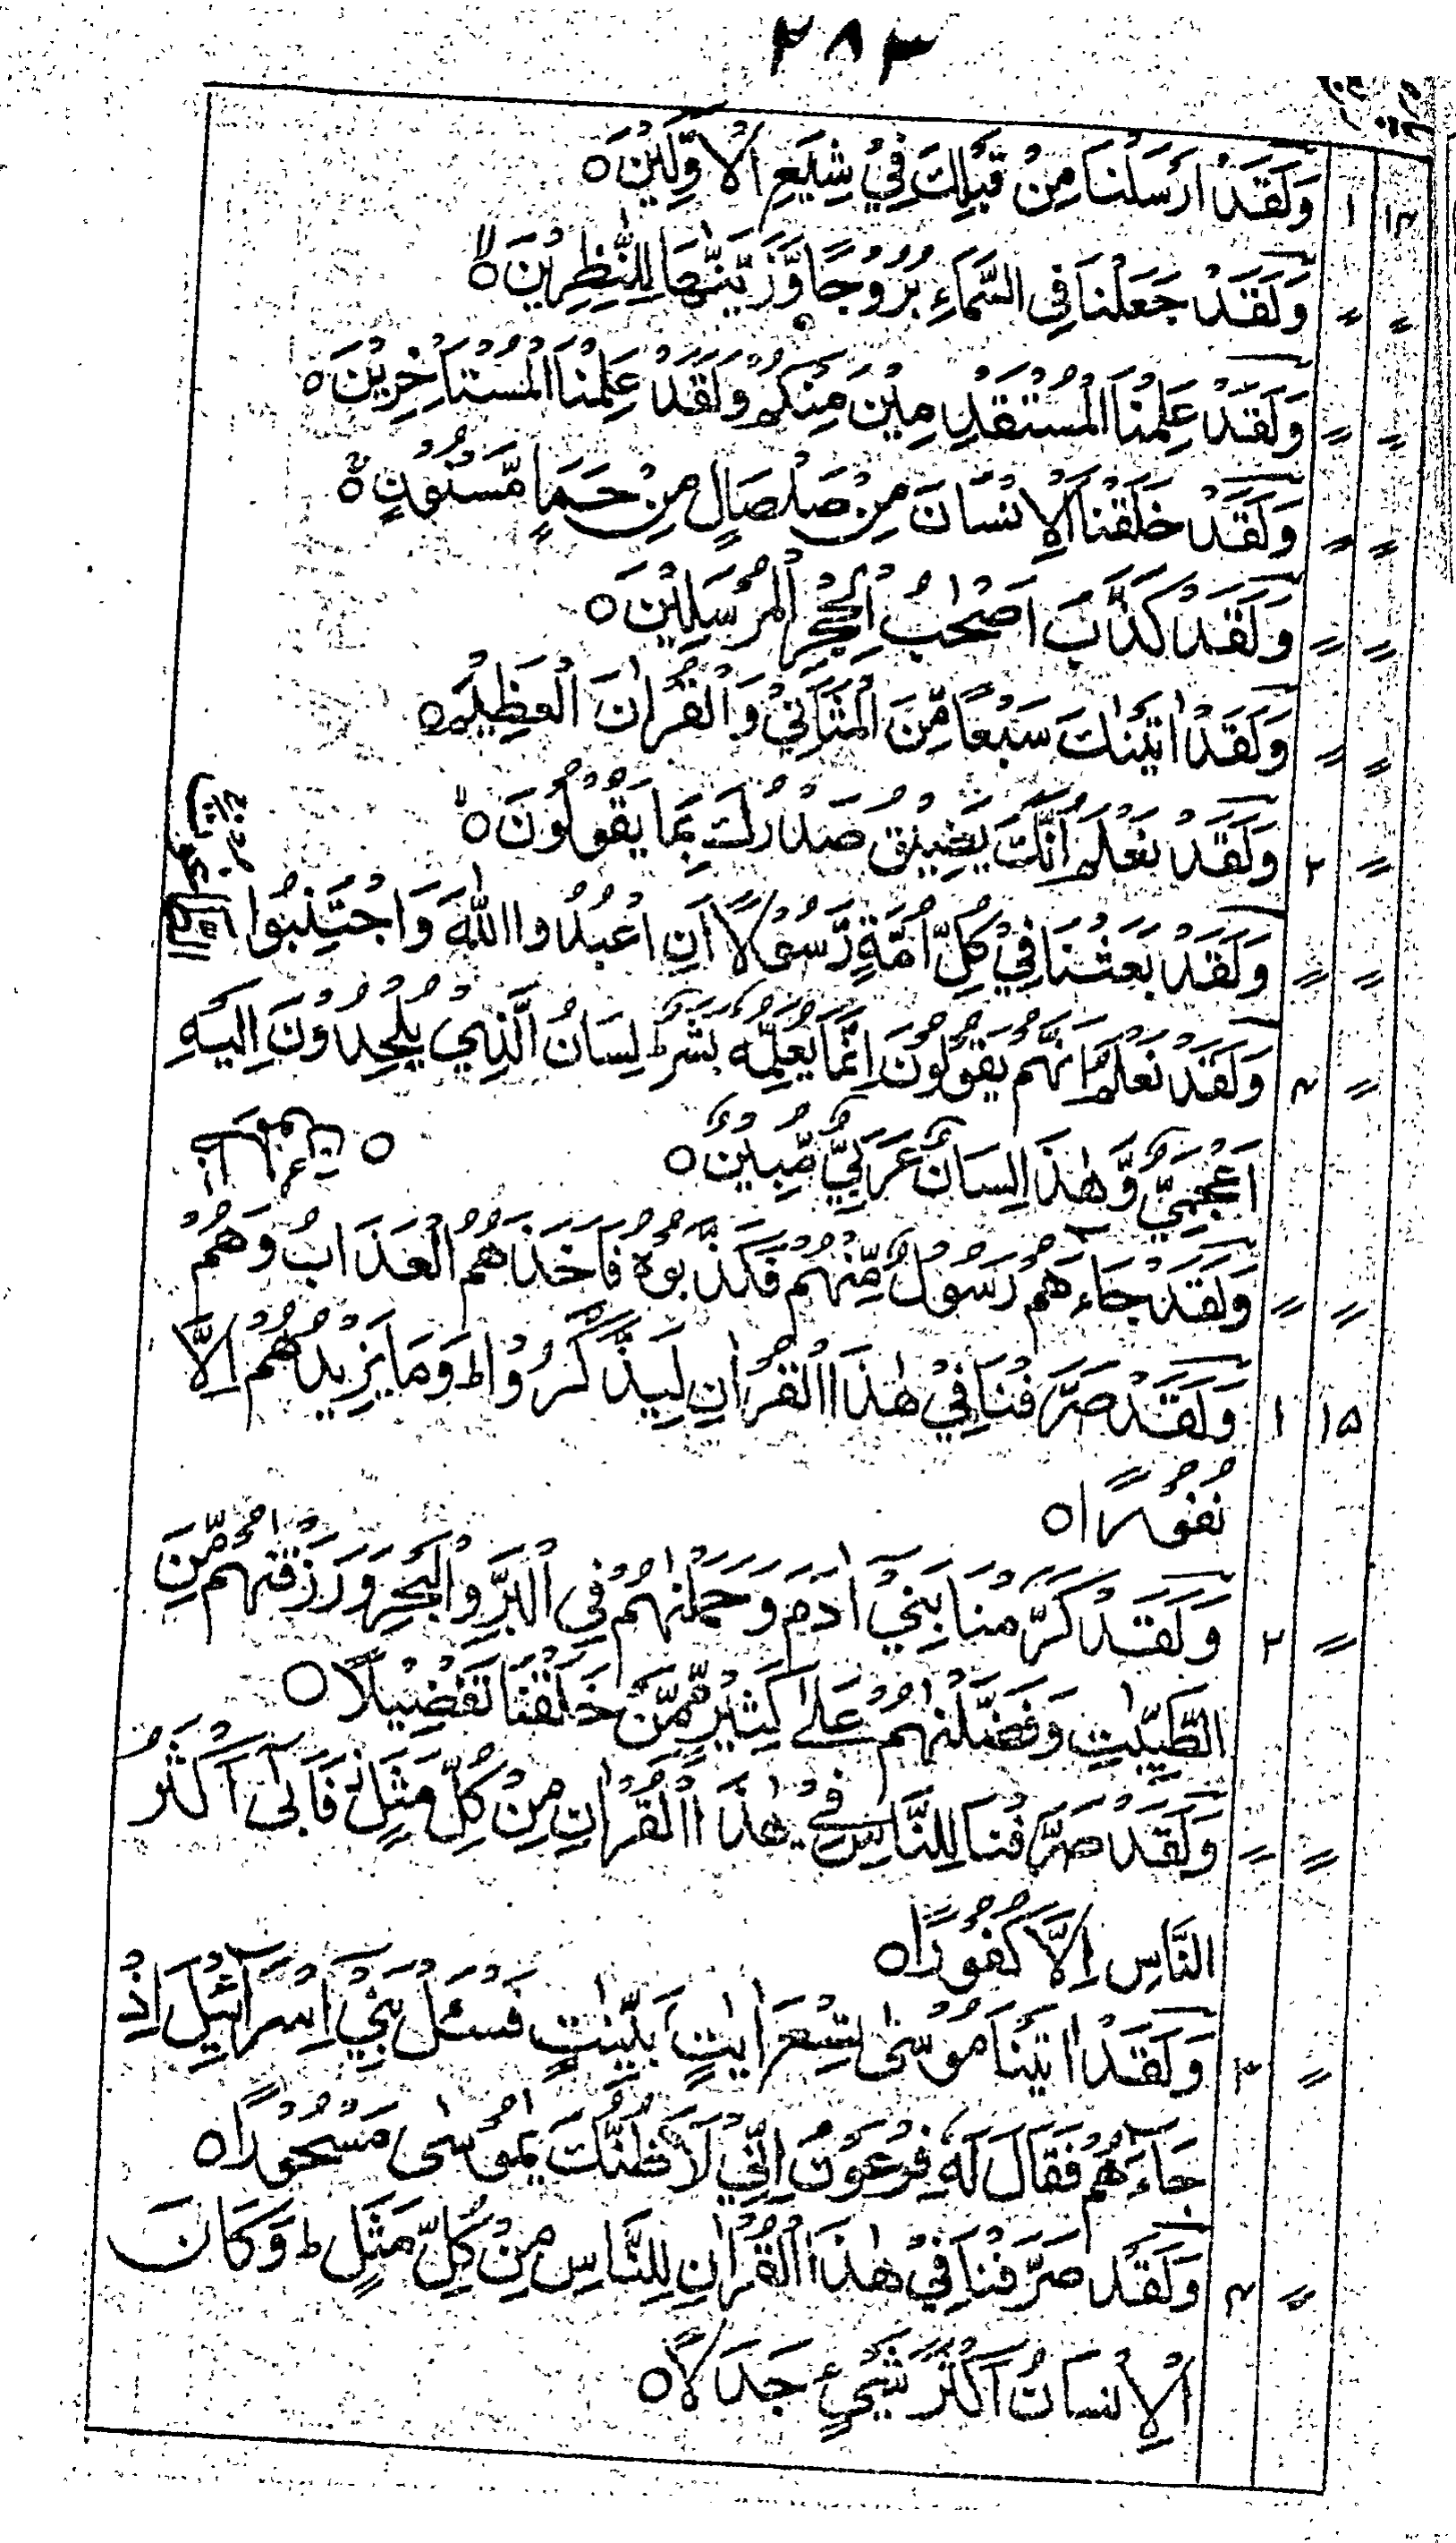 ۲۸۳
۱۴ ۱ وَلَقَدْ اَرْسَلْنَا مِنْ قَبْلِكَ فِيْ شِيَعِ الْاَوَّلِيْنَ ○
〃 〃 وَلَقَدْ جَعَلْنَا فِى السَّمَآءِ بُرُوْجًا وَّزَيَّنّٰهَا لِلنّٰظِرِيْنَ ○
〃 〃 وَلَقَدْ عَلِمْنَا الْمُسْتَقْدِمِيْنَ مِنْكُمْ وَلَقَدْ عَلِمْنَا الْمُسْتَاْخِرِيْنَ ○
〃 〃 وَلَقَدْ خَلَقْنَا الْاِنْسَانَ مِنْ صَلْصَالٍ مِنْ حَمَاٍ مَّسْنُوْنٍ ○
〃 〃 وَلَقَدْ كَذَّبَ اَصْحٰبُ الْحِجْرِ الْمُرْسَلِيْنَ ○
〃 〃 وَلَقَدْ اٰتَيْنٰكَ سَبْعًا مِّنَ الْمَثَانِيْ وَالْقُرْاٰنَ الْعَظِيْمَ ○
〃 ۲ وَلَقَدْ نَعْلَمُ اَنَّكَ يَضِيْقُ صَدْرُكَ بِمَا يَقُوْلُوْنَ ○
〃 〃 وَلَقَدْ بَعَثْنَا فِيْ كُلِّ اُمَّةٍ رَّسُوْلًا اَنِ اعْبُدُوا اللّٰهَ وَاجْتَنِبُوا
〃 ۴ وَلَقَدْ نَعْلَمُ اَنَّهُمْ يَقُوْلُوْنَ اِنَّمَا يُعَلِّمُهٗ بَشَرٌ ط لِسَانُ الَّذِيْ يُلْحِدُوْنَ اِلَيْهِ
اَعْجَمِيٌّ وَّهٰذَا لِسَانٌ عَرَبِيٌّ مُّبِيْنٌ ○
〃 〃 وَلَقَدْ جَآءَهُمْ رَسُوْلٌ مِّنْهُمْ فَكَذَّبُوْهُ فَاَخَذَهُمُ الْعَذَابُ وَهُمْ
۱۵ ۱ وَلَقَدْ صَرَّفْنَا فِيْ هٰذَا الْقُرْاٰنِ لِيَذَّكَّرُوْا ط وَمَا يَزِيْدُهُمْ اِلَّا
نُفُوْرًا ○
〃 ۲ وَلَقَدْ كَرَّمْنَا بَنِيْ اٰدَمَ وَحَمَلْنٰهُمْ فِى الْبَرِّ وَالْبَحْرِ وَرَزَقْنٰهُمْ مِّنَ
الطَّيِّبٰتِ وَفَضَّلْنٰهُمْ عَلٰى كَثِيْرٍ مِّمَّنْ خَلَقْنَا تَفْضِيْلًا ○
〃 〃 وَلَقَدْ صَرَّفْنَا لِلنَّاسِ فِيْ هٰذَا الْقُرْاٰنِ مِنْ كُلِّ مَثَلٍ فَاَبٰى اَكْثَرُ
النَّاسِ اِلَّا كُفُوْرًا ○
〃 ۳ وَلَقَدْ اٰتَيْنَا مُوْسٰى تِسْعَ اٰيٰتٍ بَيِّنٰتٍ فَسْئَلْ بَنِيْ اِسْرَآئِيْلَ اِذْ
جَآءَهُمْ فَقَالَ لَهٗ فِرْعَوْنُ اِنِّيْ لَاَظُنُّكَ يٰمُوْسٰى مَسْحُوْرًا ○
〃 ۴ وَلَقَدْ صَرَّفْنَا فِيْ هٰذَا الْقُرْاٰنِ لِلنَّاسِ مِنْ كُلِّ مَثَلٍ ط وَكَانَ
الْاِنْسَانُ اَكْثَرَ شَيْءٍ جَدَلًا ○